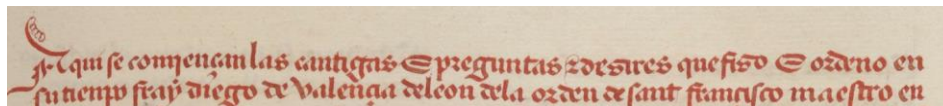 Aqui se comjencan las cantigas E preguntas & desires que fiso E ordeno en
su tienpo fray diego de valençia de leon dela orden de sant françisco maestro en